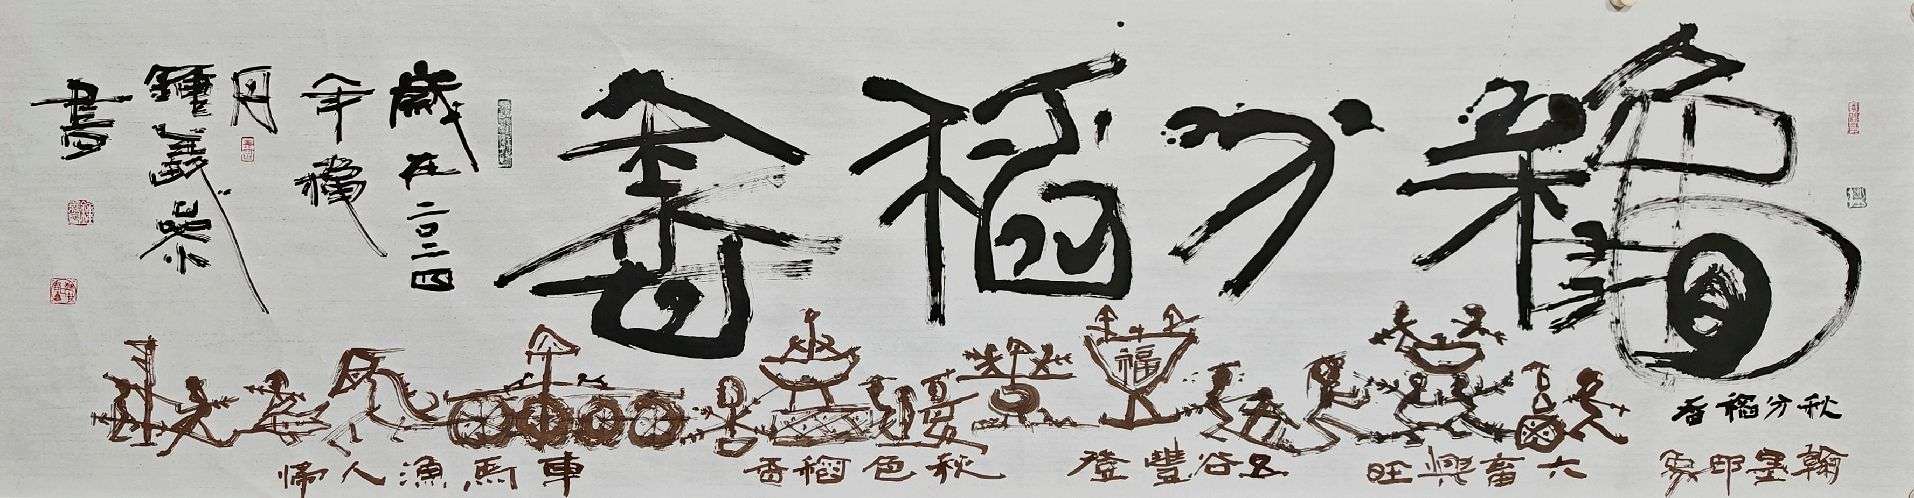 秋分稻香
秋分稻香
翰墨印象
六畜興旺
福
五谷豐登
秋色稻香
車馬漁人歸
歲在二〇二四
年秋
月
鍾
書